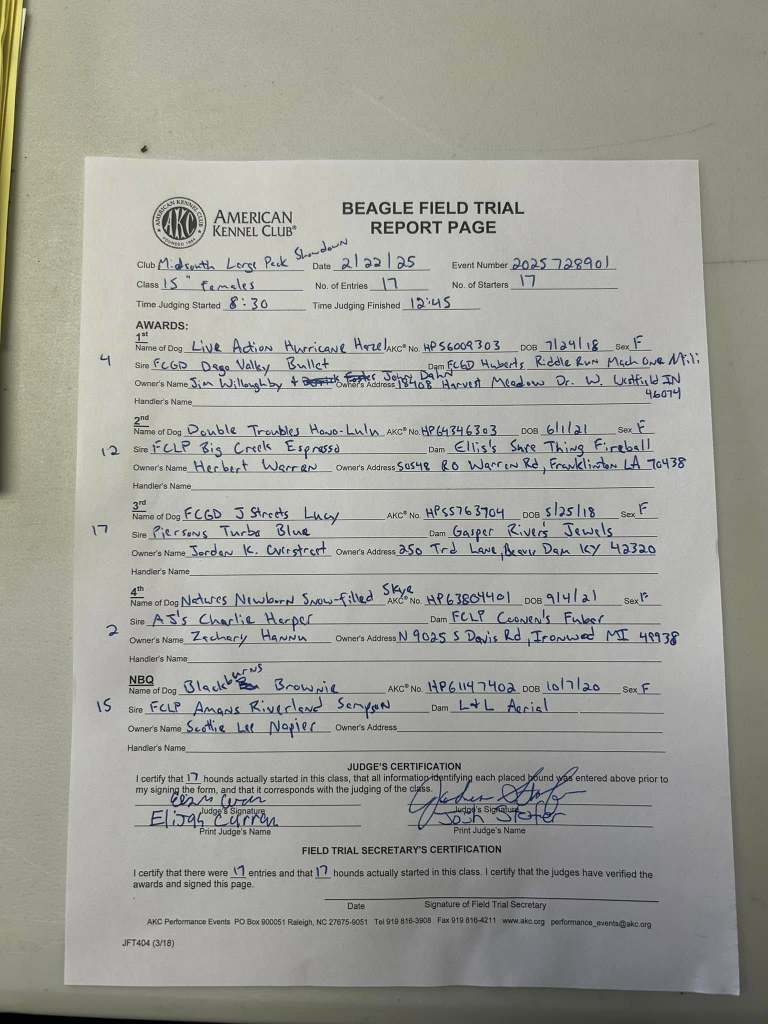 AMERICAN KENNEL CLUB®
AKC
BEAGLE FIELD TRIAL
REPORT PAGE
Club Midsouth Large Pack Showdown Date 2/22/25 Event Number 2025728901
Class 15" Females No. of Entries 17 No. of Starters 17
Time Judging Started 8:30 Time Judging Finished 12:45
AWARDS:
1st
Name of Dog Live Action Hurricane Hazel AKC® No. HP56009303 DOB 7/24/18 Sex F
4 Sire FCGD Dago Valley Bullet Dam FCGD Huberts Riddle Run Mach One Mili
Owner's Name Jim Willoughby + John Dahn Owner's Address 18408 Harvest Meadow Dr. W. Westfield IN 46074
Handler's Name
2nd
Name of Dog Double Troubles Hono-Lulu AKC® No. HP64346303 DOB 6/1/21 Sex F
12 Sire FCLP Big Creek Espresso Dam Ellis's Sure Thing Fireball
Owner's Name Herbert Warren Owner's Address 50548 RO Warren Rd, Franklinton LA 70438
Handler's Name
3rd
Name of Dog FCGD J Streets Lucy AKC® No. HP55763704 DOB 5/25/18 Sex F
17 Sire Piersons Turbo Blue Dam Gasper Rivers Jewels
Owner's Name Jordan K. Overstreet Owner's Address 250 Trd Lane, Beaver Dam KY 42320
Handler's Name
4th
Name of Dog Natures Newborn Snow-filled Skye AKC® No. HP63804401 DOB 9/4/21 Sex F
Sire AJ's Charlie Harper Dam FCLP Coonen's Fubar
2 Owner's Name Zachary Hannu Owner's Address N 9025 S Davis Rd, Ironwood MI 49938
Handler's Name
NBQ
Name of Dog Blackburns Brownie AKC® No. HP61147402 DOB 10/7/20 Sex F
15 Sire FCLP Amans Riverland Sampson Dam L+L Aerial
Owner's Name Scottie Lee Napier Owner's Address
Handler's Name
JUDGE'S CERTIFICATION
I certify that 17 hounds actually started in this class, that all information identifying each placed hound was entered above prior to
my signing the form, and that it corresponds with the judging of the class.
Judge's Signature Judge's Signature
Elijah Curran Josh Stafer
Print Judge's Name Print Judge's Name
FIELD TRIAL SECRETARY'S CERTIFICATION
I certify that there were 17 entries and that 17 hounds actually started in this class. I certify that the judges have verified the
awards and signed this page.
Date Signature of Field Trial Secretary
AKC Performance Events PO Box 900051 Raleigh, NC 27675-9051 Tel 919 816-3908 Fax 919 816-4211 www.akc.org performance_events@akc.org
JFT404 (3/18)